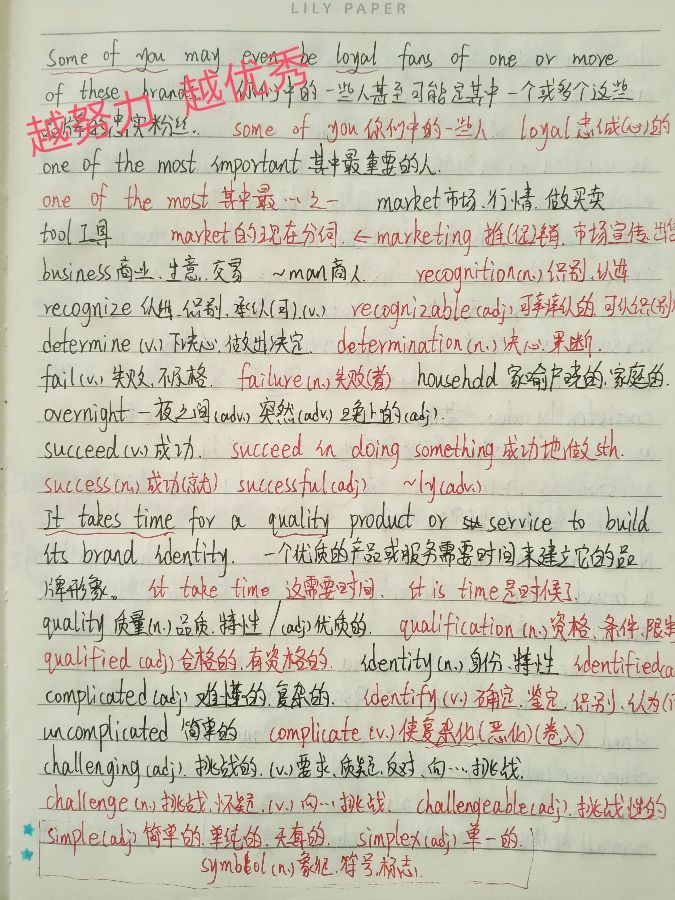 LILY PAPER
some of you may even be loyal fans of one or more
of these brand 你们中的一些人甚至可能是其中一个或多个这些
品牌的忠实粉丝. some of you 你们中的一些人 loyal 忠诚(心)的
越努力 越优秀
one of the most important 其中最重要的人.
one of the most 其中最…之一 market 市场.行情.做买卖
tool 工具 market的现在分词 ← marketing 推(促)销.市场宣传
business 商业.生意.交易 ~man商人 recognition(n.)识别.认进
recognize 认进.识别.承认(可)(v.) recognizable(adj)可辨认的.可认识(别)
determine (v.) 下决心.做出决定. determination(n.)决心.果断.
fail(v.) 失败.不及格. failure(n.)失败(者) household 家喻户晓的.家庭的.
overnight 一夜之间(adv.) 突然(adv.) 晚上的(adj).
succeed(v.)成功. succeed in doing something 成功地做sth.
success(n.)成功(就) successful(adj) ~ly(adv.)
It takes time for a quality product or service to build
its brand identity. 一个优质的产品或服务需要时间来建立它的品
牌形象。 it take time 这需要时间. it is time 是时候了.
quality 质量(n.)品质.特性/(adj)优质的. qualification(n.)资格.条件.限制
qualified (adj) 合格的.有资格的. identity(n.)身份.特性 identified(a
complicated(adj) 难懂的.复杂的. identify(v.)确定.鉴定.识别.认为
uncomplicated 简单的 complicate(v.)使复杂化(恶化)(卷入)
challenging(adj). 挑战的.(v.)要求.质疑.反对.向…挑战.
challenge(n.)挑战.怀疑.(v.)向…挑战 challengeable(adj).挑战性的
simple(adj)简单的.单纯的.天真的. simplex(adj)单一的.
symbol(n.)象征.符号.标志.